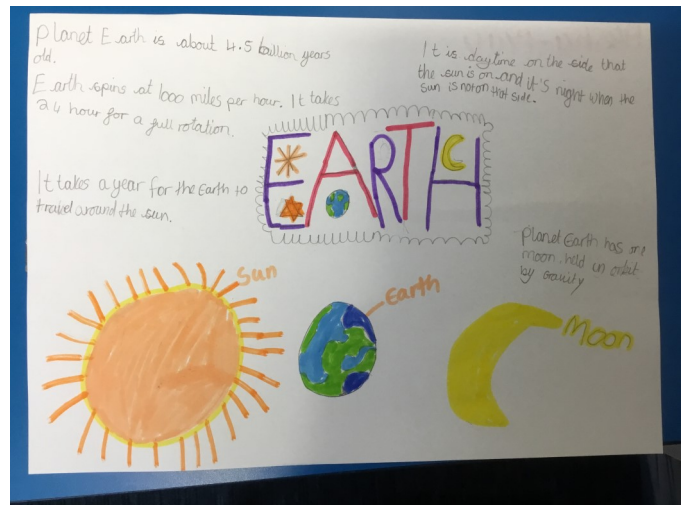 Planet Earth is about 4.5 billion years
old.
Earth spins at 1000 miles per hour. It takes
24 hour for a full rotation.
It takes a year for the Earth to
travel around the sun.
It is daytime on the side that
the sun is on and it's night when the
sun is not on that side.
EARTH
Planet Earth has one
moon held in orbit
by Gravity
Sun
Earth
Moon